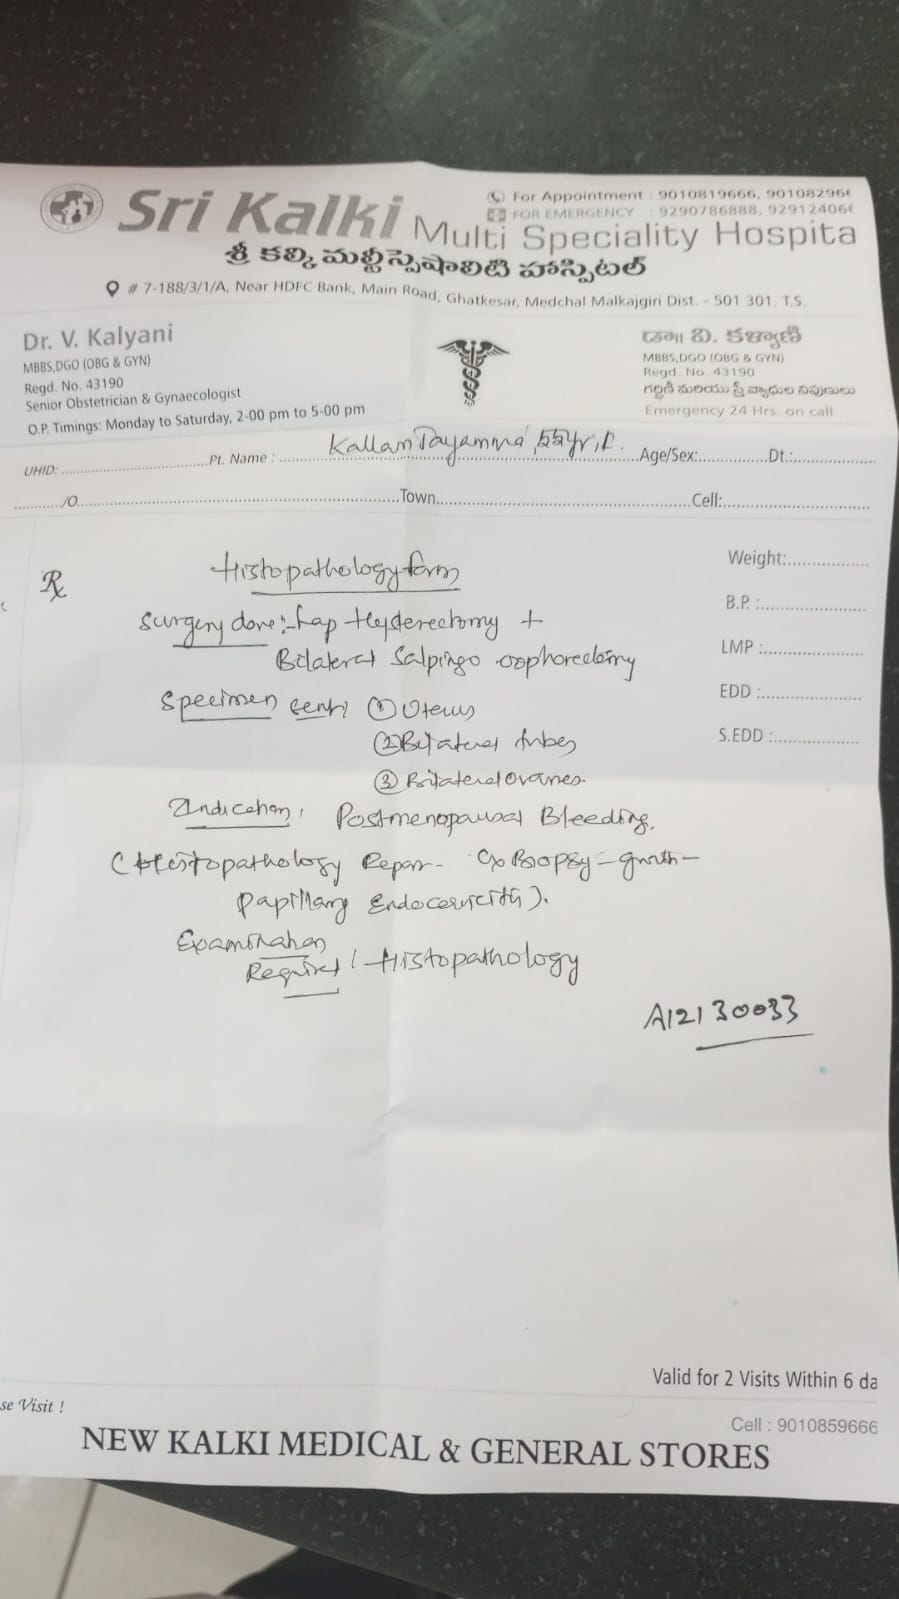 Sri Kalki Multi Speciality Hospita
For Appointment : 9010819666, 90108296
FOR EMERGENCY : 9290786888, 92912406
శ్రీ కల్కి మల్టీస్పెషాలిటి హాస్పిటల్
# 7-188/3/1/A, Near HDFC Bank, Main Road, Ghatkesar, Medchal Malkajgiri Dist. - 501 301. T.S.
Dr. V. Kalyani
MBBS,DGO (OBG & GYN)
Regd. No. 43190
Senior Obstetrician & Gynaecologist
O.P. Timings: Monday to Saturday, 2-00 pm to 5-00 pm
డా॥ వి. కళ్యాణి
MBBS,DGO (OBG & GYN)
Regd. No. 43190
గర్భిణి మరియు స్త్రీ వ్యాధుల నిపుణులు
Emergency 24 Hrs. on call
UHID: Pt. Name : Kallam Tayamma, Age/Sex: Dt.:
/O Town Cell:
Rx
Histopathology form
Surgery done:- Lap Hysterectomy +
Bilateral Salpingo oophorectomy
Specimen sent: ① Uterus
② Bilateral tubes
③ Bilateral Ovaries.
Indication: Postmenopausal Bleeding.
(Histopathology Report- Cx Biopsy - growth -
Papillary Endocervicitis).
Examination
Required: Histopathology
A12130033
Weight:
B.P. :
LMP :
EDD :
S.EDD :
Valid for 2 Visits Within 6 da
se Visit !
Cell : 9010859666
NEW KALKI MEDICAL & GENERAL STORES